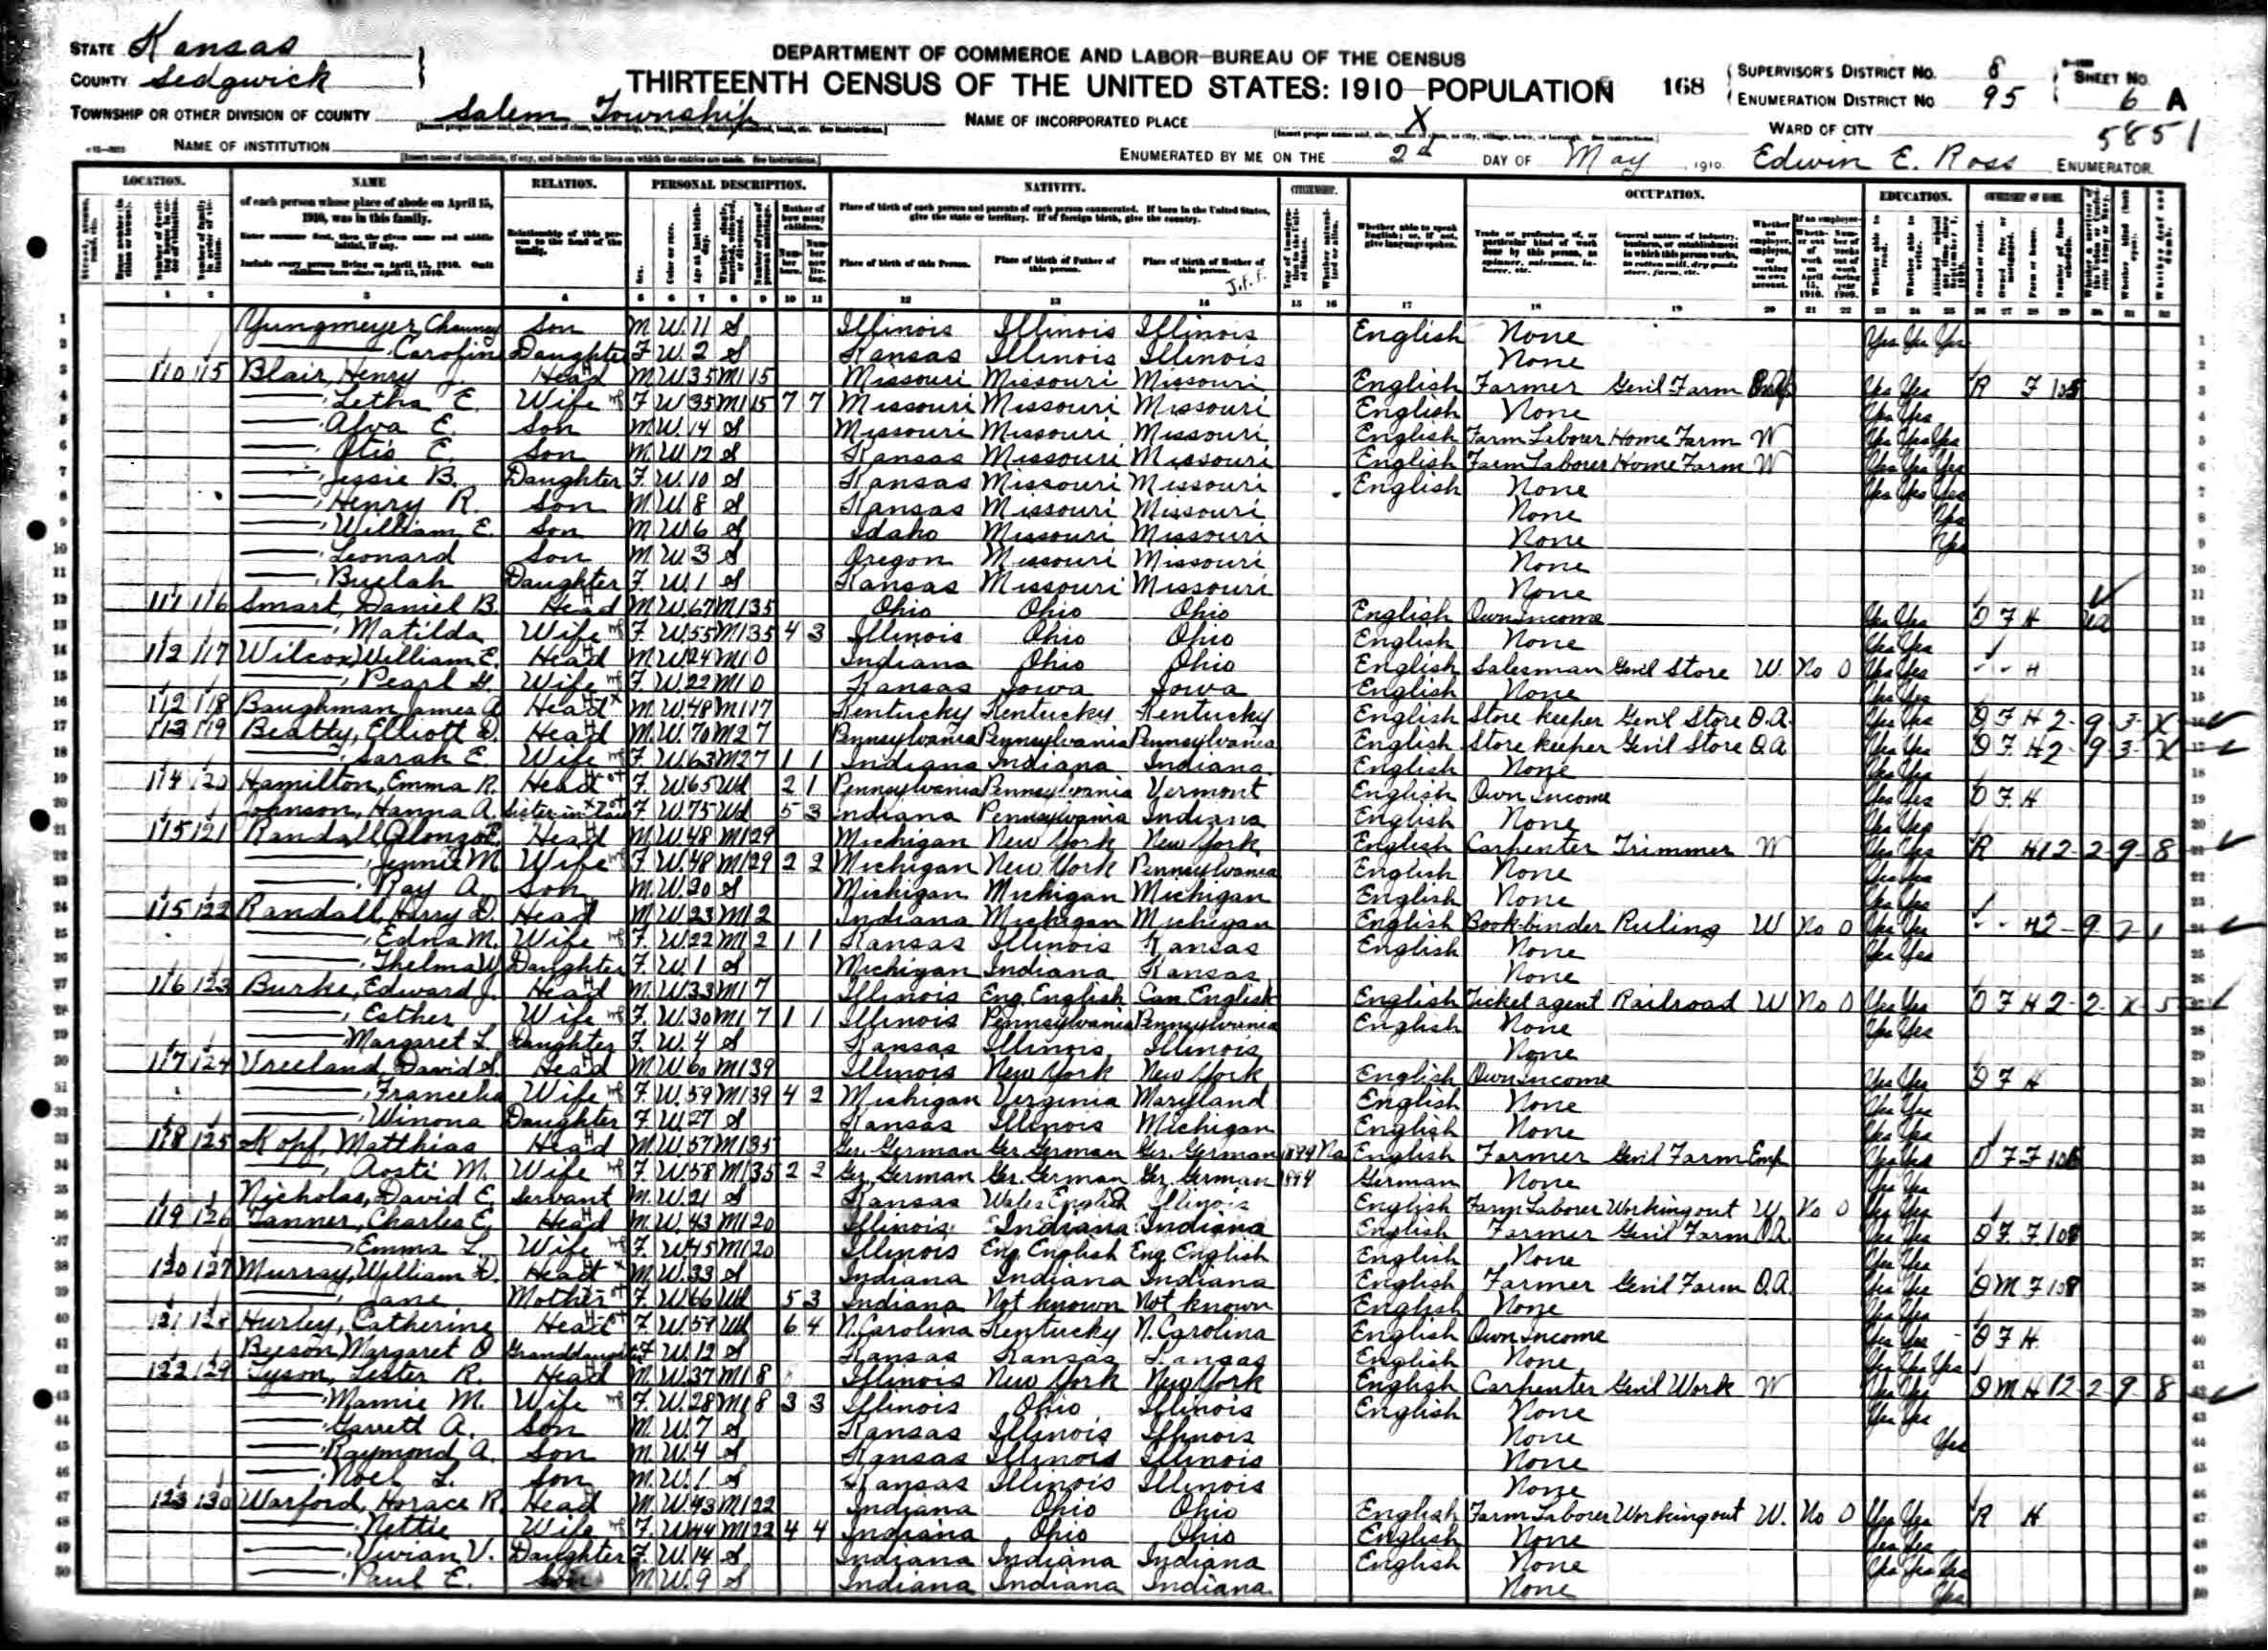 STATE Kansas
COUNTY Sedgwick
TOWNSHIP OR OTHER DIVISION OF COUNTY Salem Township
NAME OF INSTITUTION
DEPARTMENT OF COMMERCE AND LABOR-BUREAU OF THE CENSUS
THIRTEENTH CENSUS OF THE UNITED STATES: 1910 POPULATION 168
NAME OF INCORPORATED PLACE X
ENUMERATED BY ME ON THE 2d DAY OF May, 1910. Edwin E. Ross ENUMERATOR.
SUPERVISOR'S DISTRICT NO. 8
ENUMERATION DISTRICT NO 95
SHEET NO. 6 A
WARD OF CITY
5851
LOCATION. NAME RELATION. PERSONAL DESCRIPTION. NATIVITY. CITIZENSHIP. OCCUPATION. EDUCATION. OWNERSHIP OF HOME.
of each person whose place of abode on April 15, 1910, was in this family.
Enter surname first, then the given name and middle initial, if any.
Include every person living on April 15, 1910. Omit children born since April 15, 1910.
Relationship of this person to the head of the family.
Place of birth of each person and parents of each person enumerated. If born in the United States, give the state or territory. If of foreign birth, give the country.
Place of birth of this Person. Place of birth of Father of this person. Place of birth of Mother of this person.
Whether able to speak English; or, if not, give language spoken.
1 2 3 4 5 6 7 8 9 10 11 12 13 14 15 16 17 18 19 20 21 22 23 24 25 26 27 28 29 30 31 32
1 Yungmeyer, Chauncy Son M W 11 S Illinois Illinois Illinois English None Yes Yes Yes
2 Daughter F W 2 S Kansas Illinois Illinois None
3 110 115 Blair, Henry J. Head M W 35 M1 15 Missouri Missouri Missouri English Farmer Gen'l Farm Yes Yes R F 105
4 Letha E. Wife F W 35 M1 15 7 7 Missouri Missouri Missouri English None Yes Yes
5 Alva E. Son M W 14 S Missouri Missouri Missouri English Farm Laborer Home Farm W Yes Yes Yes
6 Otis E. Son M W 12 S Kansas Missouri Missouri English Farm Laborer Home Farm W Yes Yes Yes
7 Jessie B. Daughter F W 10 S Kansas Missouri Missouri English None Yes Yes Yes
8 Henry R. Son M W 8 S Kansas Missouri Missouri None Yes
9 William E. Son M W 6 S Idaho Missouri Missouri None Yes
10 Leonard Son M W 3 S Oregon Missouri Missouri None
11 Buelah Daughter F W 1 S Kansas Missouri Missouri None
12 111 116 Smart, Daniel B. Head M W 67 M1 35 Ohio Ohio Ohio English Own Income Yes Yes O F H UA
13 Matilda Wife F W 55 M1 35 4 3 Illinois Ohio Ohio English None Yes Yes
14 112 117 Wilcox, William E. Head M W 24 M1 0 Indiana Ohio Ohio English Salesman Gen'l Store W No 0 Yes Yes H
15 Pearl Wife F W 22 M1 0 Kansas Iowa Iowa English None Yes Yes
16 112 118 Baughman, James A Head M W 48 M1 17 Kentucky Kentucky Kentucky English Store keeper Gen'l Store O.A. Yes Yes O F H 2-9 3-X
17 113 119 Beatty, Elliott D. Head M W 70 M2 7 Pennsylvania Pennsylvania Pennsylvania English Store keeper Gen'l Store O A Yes Yes O F H 2-9 3-X
18 Sarah E. Wife F W 63 M2 7 1 1 Indiana Indiana Indiana English None Yes Yes
19 114 120 Hamilton, Emma R. Head F W 65 Wd 2 1 Pennsylvania Pennsylvania Vermont English Own Income Yes Yes O F H
20 Johnson, Hanna A. Sister-in-law F W 75 Wd 5 3 Indiana Pennsylvania Indiana English None Yes Yes
21 115 121 Randall, Alonzo E. Head M W 48 M1 29 Michigan New York New York English Carpenter Trimmer W Yes Yes R H 12-2-9-8
22 Jennie M. Wife F W 48 M1 29 2 2 Michigan New York Pennsylvania English None Yes Yes
23 Ray A. Son M W 20 S Michigan Michigan Michigan English None Yes Yes
24 115 122 Randall, Harry D. Head M W 23 M1 2 Indiana Michigan Michigan English Book-binder Ruling W No 0 Yes Yes H 2-9
25 Edna M. Wife F W 22 M1 2 1 1 Kansas Illinois Kansas English None Yes Yes
26 Thelma Daughter F W 1 S Michigan Indiana Kansas None
27 116 123 Burke, Edward J. Head M W 33 M1 7 Illinois Eng. English Can English English Ticket agent Railroad W No 0 Yes Yes O F H 2-2-X-5
28 Esther Wife F W 30 M1 7 1 1 Illinois Pennsylvania Pennsylvania English None Yes Yes
29 Margaret L. Daughter F W 4 S Kansas Illinois Illinois None
30 117 124 Vreeland, David S. Head M W 60 M1 39 Illinois New York New York English Own income Yes Yes O F H
31 Francelia Wife F W 59 M1 39 4 2 Michigan Virginia Maryland English None Yes Yes
32 Winona Daughter F W 27 S Kansas Illinois Michigan English None Yes Yes
33 118 125 Kopf, Matthias Head M W 57 M1 35 Ger. German Ger. German Ger. German 1894 Na English Farmer Gen'l Farm Emp Yes Yes O F F 106
34 M. Wife F W 58 M1 35 2 2 Ger. German Ger. German Ger. German 1894 German None Yes Yes
35 Nicholas, David E. Servant M W 21 S Kansas Wales English Illinois English Farm Laborer Working out W No 0 Yes Yes
36 119 126 Tanner, Charles E. Head M W 43 M1 20 Illinois Indiana Indiana English Farmer Gen'l Farm O.A. Yes Yes O F F 107
37 Emma L. Wife F W 45 M1 20 Illinois Eng. English Eng. English English None Yes Yes
38 120 127 Murray, William D. Head M W 33 S Indiana Indiana Indiana English Farmer Gen'l Farm O.A. Yes Yes O M F 108
39 Jane Mother F W 66 Wd 5 3 Indiana Not known Not known English None Yes Yes
40 121 128 Hurley, Catherine Head F W 59 Wd 6 4 N. Carolina Kentucky N. Carolina English Own Income Yes Yes O F H
41 Beeson, Margaret O Granddaughter F W 12 S Kansas Kansas Kansas English None Yes Yes Yes
42 122 129 Tyson, Lester R. Head M W 37 M1 8 Illinois New York New York English Carpenter Gen'l Work W Yes Yes O M H 12-2-9-8
43 Mamie M. Wife F W 28 M1 8 3 3 Illinois Ohio Illinois English None Yes Yes
44 Garrett A. Son M W 7 S Kansas Illinois Illinois None Yes
45 Raymond A. Son M W 4 S Kansas Illinois Illinois None
46 Noel L. Son M W 1 S Kansas Illinois Illinois None
47 123 130 Warford, Horace R. Head M W 43 M1 22 Indiana Ohio Ohio English Farm Laborer Working out W. No 0 Yes Yes R H
48 Nettie Wife F W 44 M1 22 4 4 Indiana Ohio Ohio English None Yes Yes
49 Vivian V. Daughter F W 14 S Indiana Indiana Indiana English None Yes Yes Yes
50 Paul E. Son M W 9 S Indiana Indiana Indiana None Yes